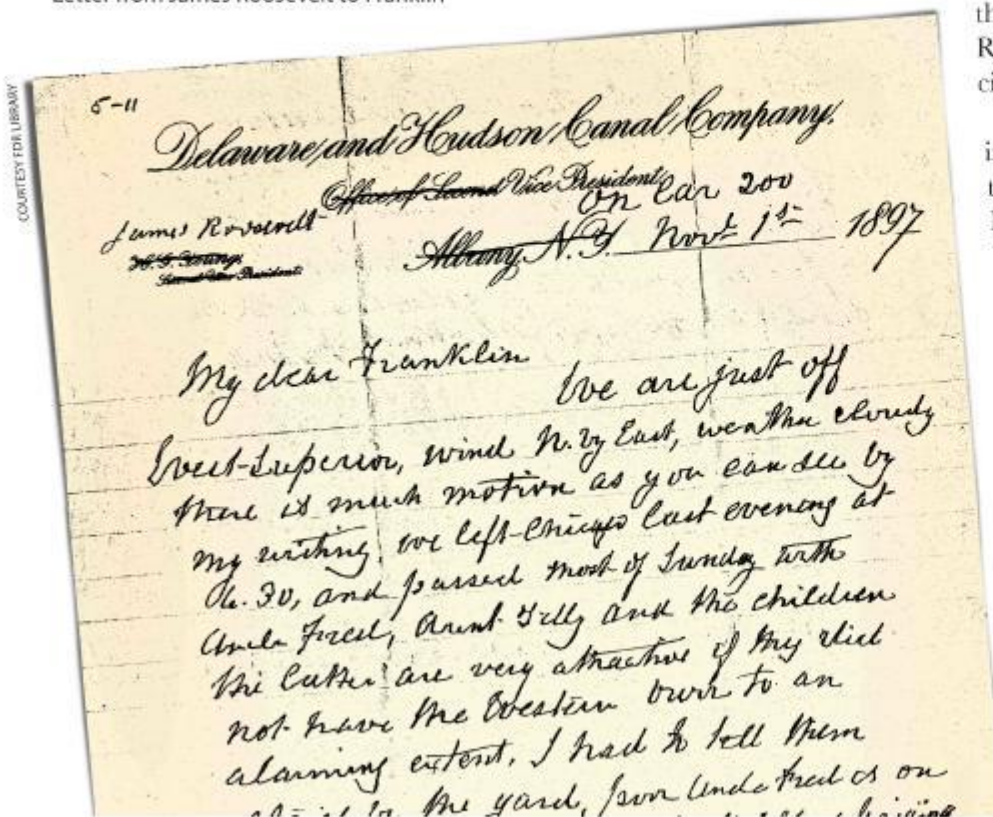 Letter from James Roosevelt to Franklin
COURTESY FDR LIBRARY
5-11
Delaware and Hudson Canal Company.
Office of Second Vice President.
On Car 200
James Roosevelt
H. G. Young,
Second Vice President.
Albany, N.Y. Nov. 1st 1897
My dear Franklin
We are just off
West Superior, wind N. by East, weather cloudy
there is much motion as you can see by
my writing we left Chicago last evening at
6.30, and passed most of Sunday with
Uncle Fred, Aunt Tilly and the children
the latter are very attractive if they did
not have the Western burr to an
alarming extent, I had to tell them
the yard, poor Uncle Fred is on
th
R
ci
i
t